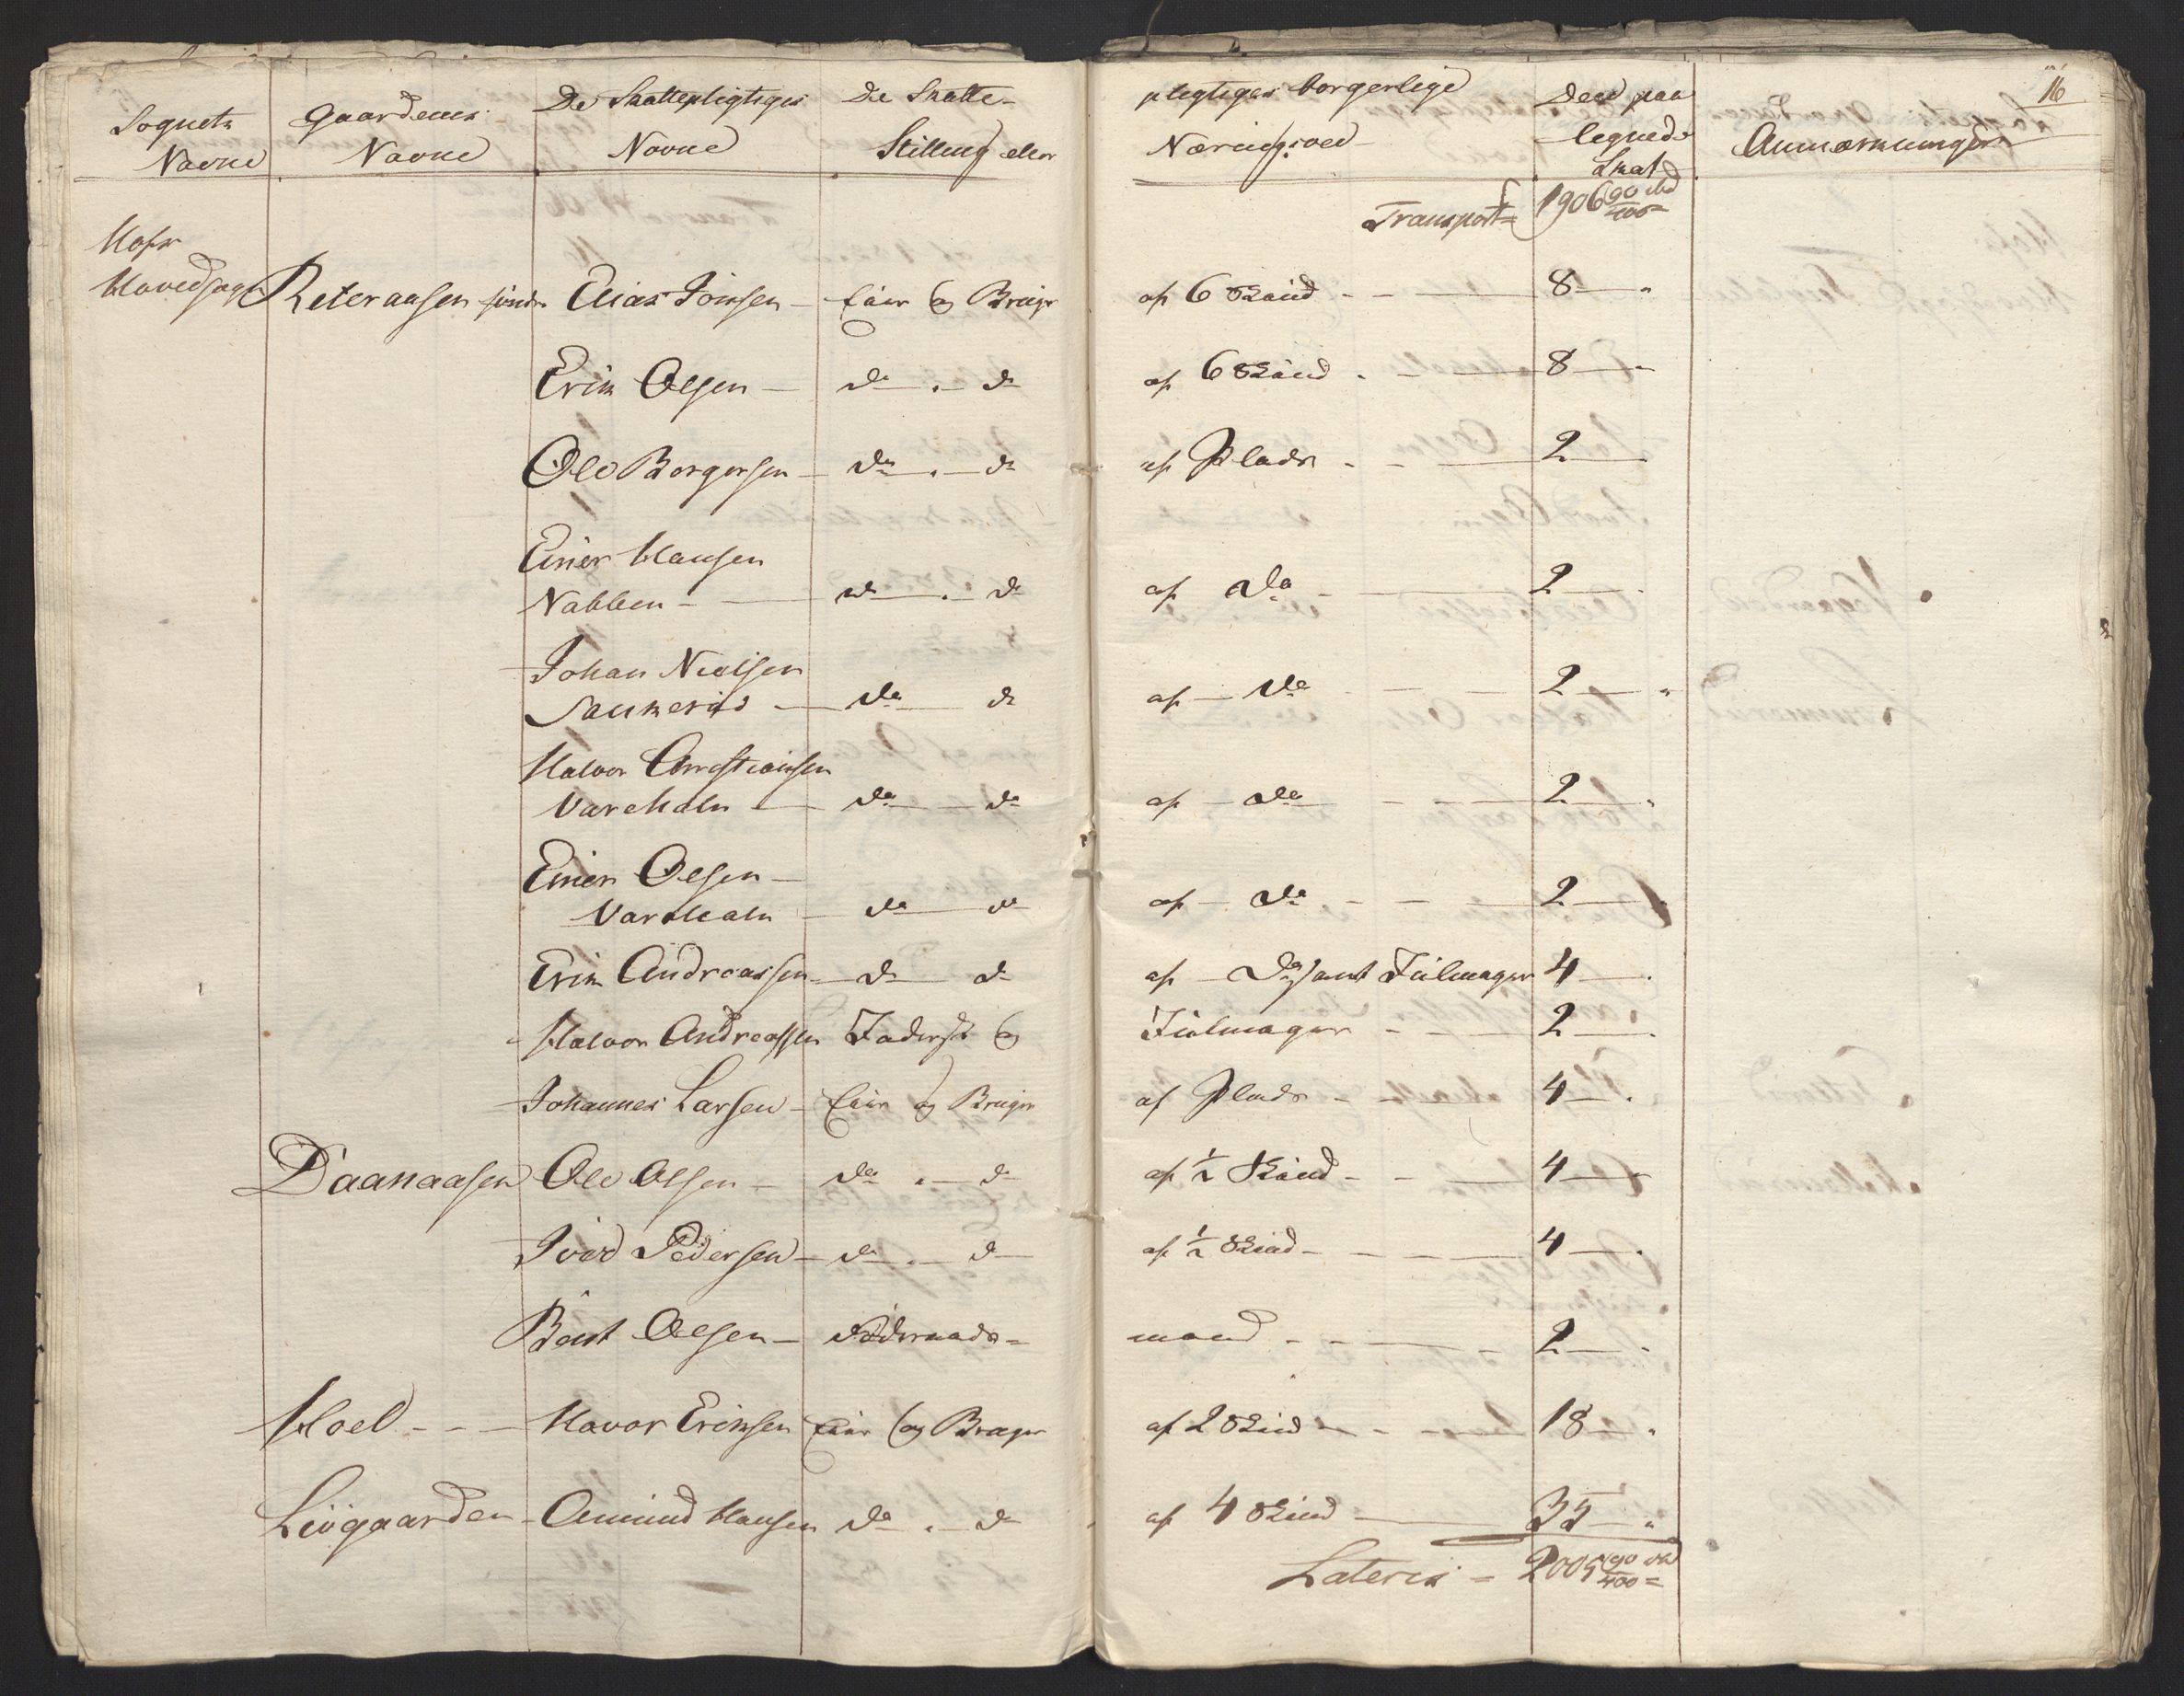 16
Sognets Navne | Gaardenes Navne | De Skattepligtiges Navne | De Skatte- pligtiges borgerlige Stilling eller Næringsvei | Den paa lignede Skat | Anmærkninger
Transport = 1906 90/400
Hofs
Hovedsogn Reteraasen søndr Elias Jonsen — Eier og Bruger af 6 Skind — 8 —
Erik Olsen — do — do af 6 Skind — 8 —
Ole Borgersen — do — do af Plads — 2 —
Einer Hansen
Nabben — do — do af do — 2 —
Johan Nielsen
Saukerud — do do af — do — 2 —
Halvor Christiansen
Varehaln — do — do af — do — 2 —
Einer Olsen —
Varehaln — do — do af — do — 2 —
Erik Andreassen — do do af — do samt Hiulmager 4 —
Halvor Andreassen Inderst og Hiulmager — 2 —
Johannes Larsen — Eier og Bruger af Plads — 4 —
Daanaasen Ole Olsen — do — do af ½ Skind — 4 —
Iver Pedersen — do — do af ½ Skind — 4 —
Bent Olsen — Föderaads- mand — 2 —
Hoel — Havor Eriksen Eier og Bruger af 2 Skind — 18 —
Liögaarden — Amund Hansen do — do af 4 Skind — 35 —
Lateris = 2005 90/400